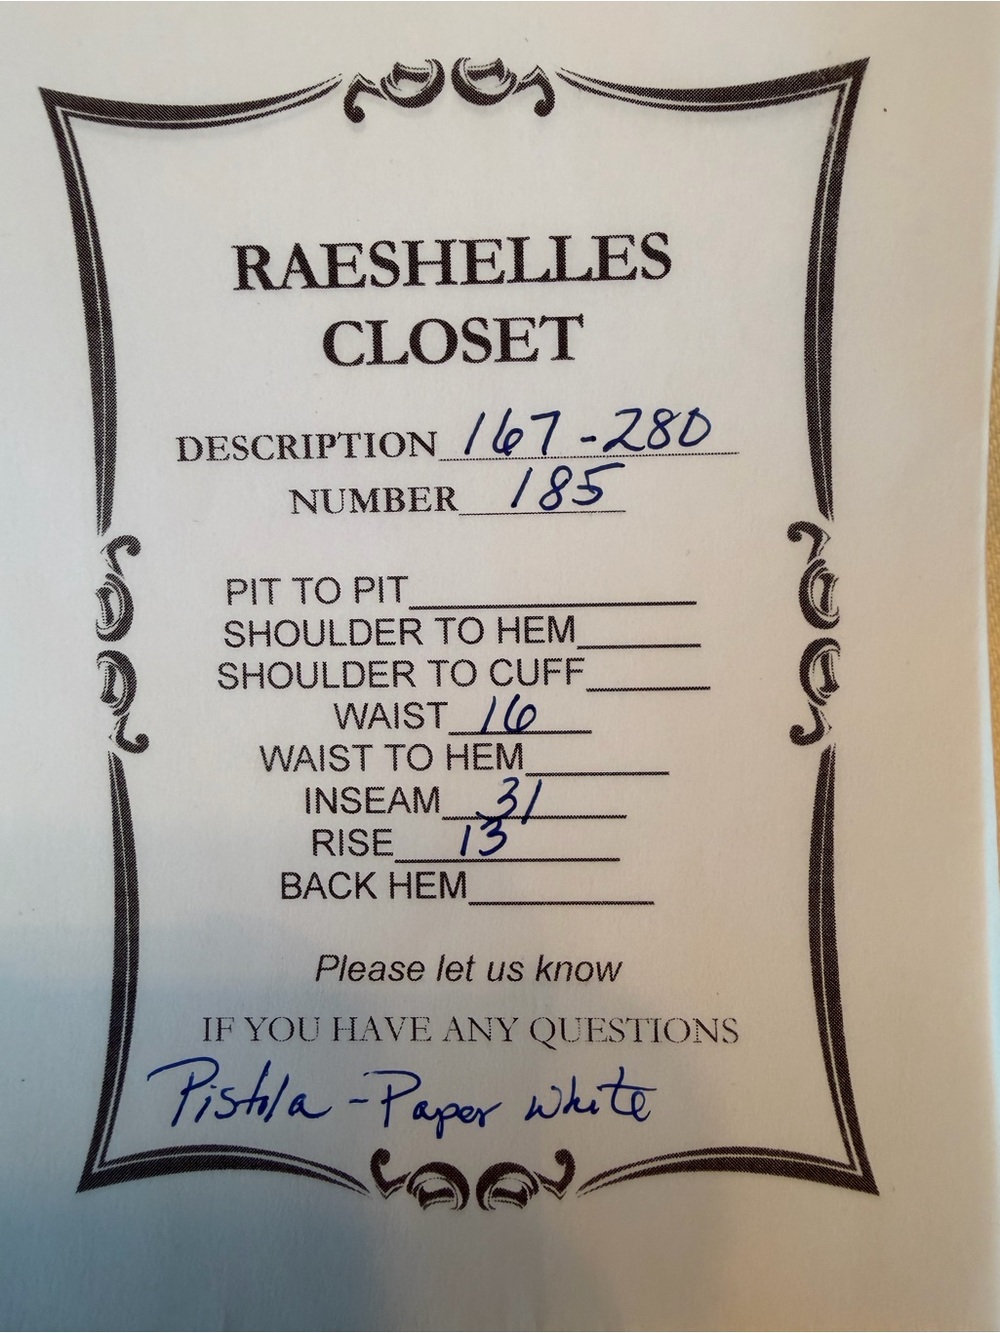 RAESHELLES
CLOSET
DESCRIPTION 167-280
NUMBER 185
PIT TO PIT
SHOULDER TO HEM
SHOULDER TO CUFF
WAIST 16
WAIST TO HEM
INSEAM 31
RISE 13
BACK HEM
Please let us know
IF YOU HAVE ANY QUESTIONS
Pistola - Paper white